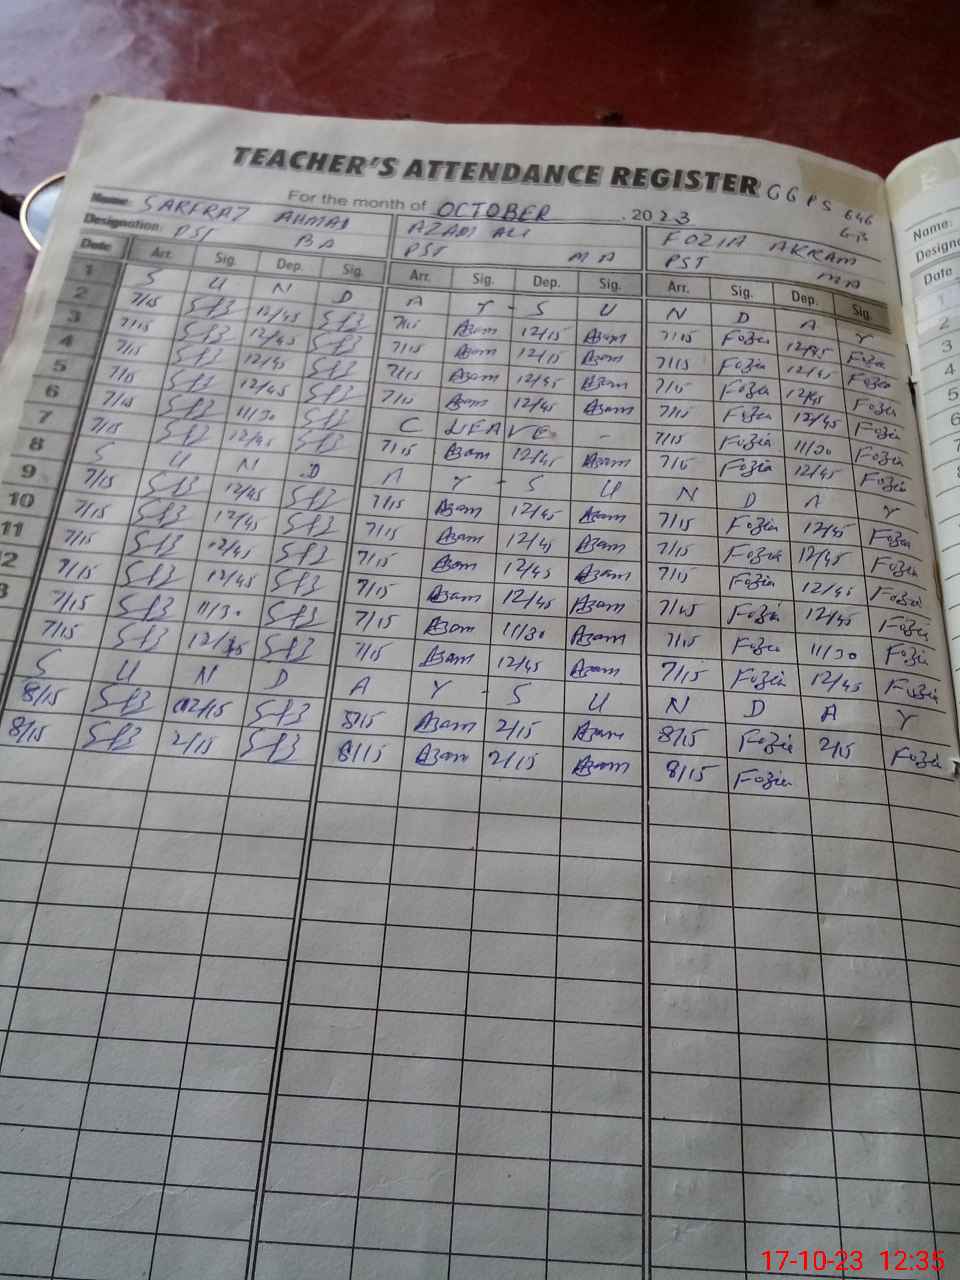 TEACHER'S ATTENDANCE REGISTER GGPS 646
For the month of OCTOBER .2023 G.B
Name: SARFRAZ AHMAD AZAM ALI FOZIA AKRAM
Designation: PST BA PST MA PST MA
Date Arr. Sig. Dep. Sig. Arr. Sig. Dep. Sig. Arr. Sig. Dep. Sig.
1 S U N D A Y - S U N D A Y
2 7/15 12/45 7/15 Azam 12/15 Azam 7/15 Fozia 12/45 Fozia
3 7/15 12/45 7/15 Azam 12/15 Azam 7/15 Fozia 12/45 Fozia
4 7/15 12/45 7/15 Azam 12/45 Azam 7/15 Fozia 12/45 Fozia
5 7/15 12/45 7/15 Azam 12/45 Azam 7/15 Fozia 12/45 Fozia
6 7/15 11/30 C LEAVE - 7/15 Fozia 11/30 Fozia
7 7/15 12/45 7/15 Azam 12/45 Azam 7/15 Fozia 12/45 Fozia
8 S U N D A Y - S U N D A Y
9 7/15 12/45 7/15 Azam 12/45 Azam 7/15 Fozia 12/45 Fozia
10 7/15 12/45 7/15 Azam 12/45 Azam 7/15 Fozia 12/45 Fozia
11 7/15 12/45 7/15 Azam 12/45 Azam 7/15 Fozia 12/45 Fozia
2 7/15 12/45 7/15 Azam 12/45 Azam 7/15 Fozia 12/45 Fozia
3 7/15 11/30 7/15 Azam 11/30 Azam 7/15 Fozia 11/30 Fozia
7/15 7/15 Azam 12/45 Azam 7/15 Fozia 12/45 Fozia
S U N D A Y - S U N D A Y
8/15 8/15 Azam 2/15 Azam 8/15 Fozia 2/15 Fozia
8/15 2/15 8/15 Azam 2/15 Azam 8/15 Fozia
Name:
Designa
Date
1
2
3
4
5
6
7
17-10-23 12:35